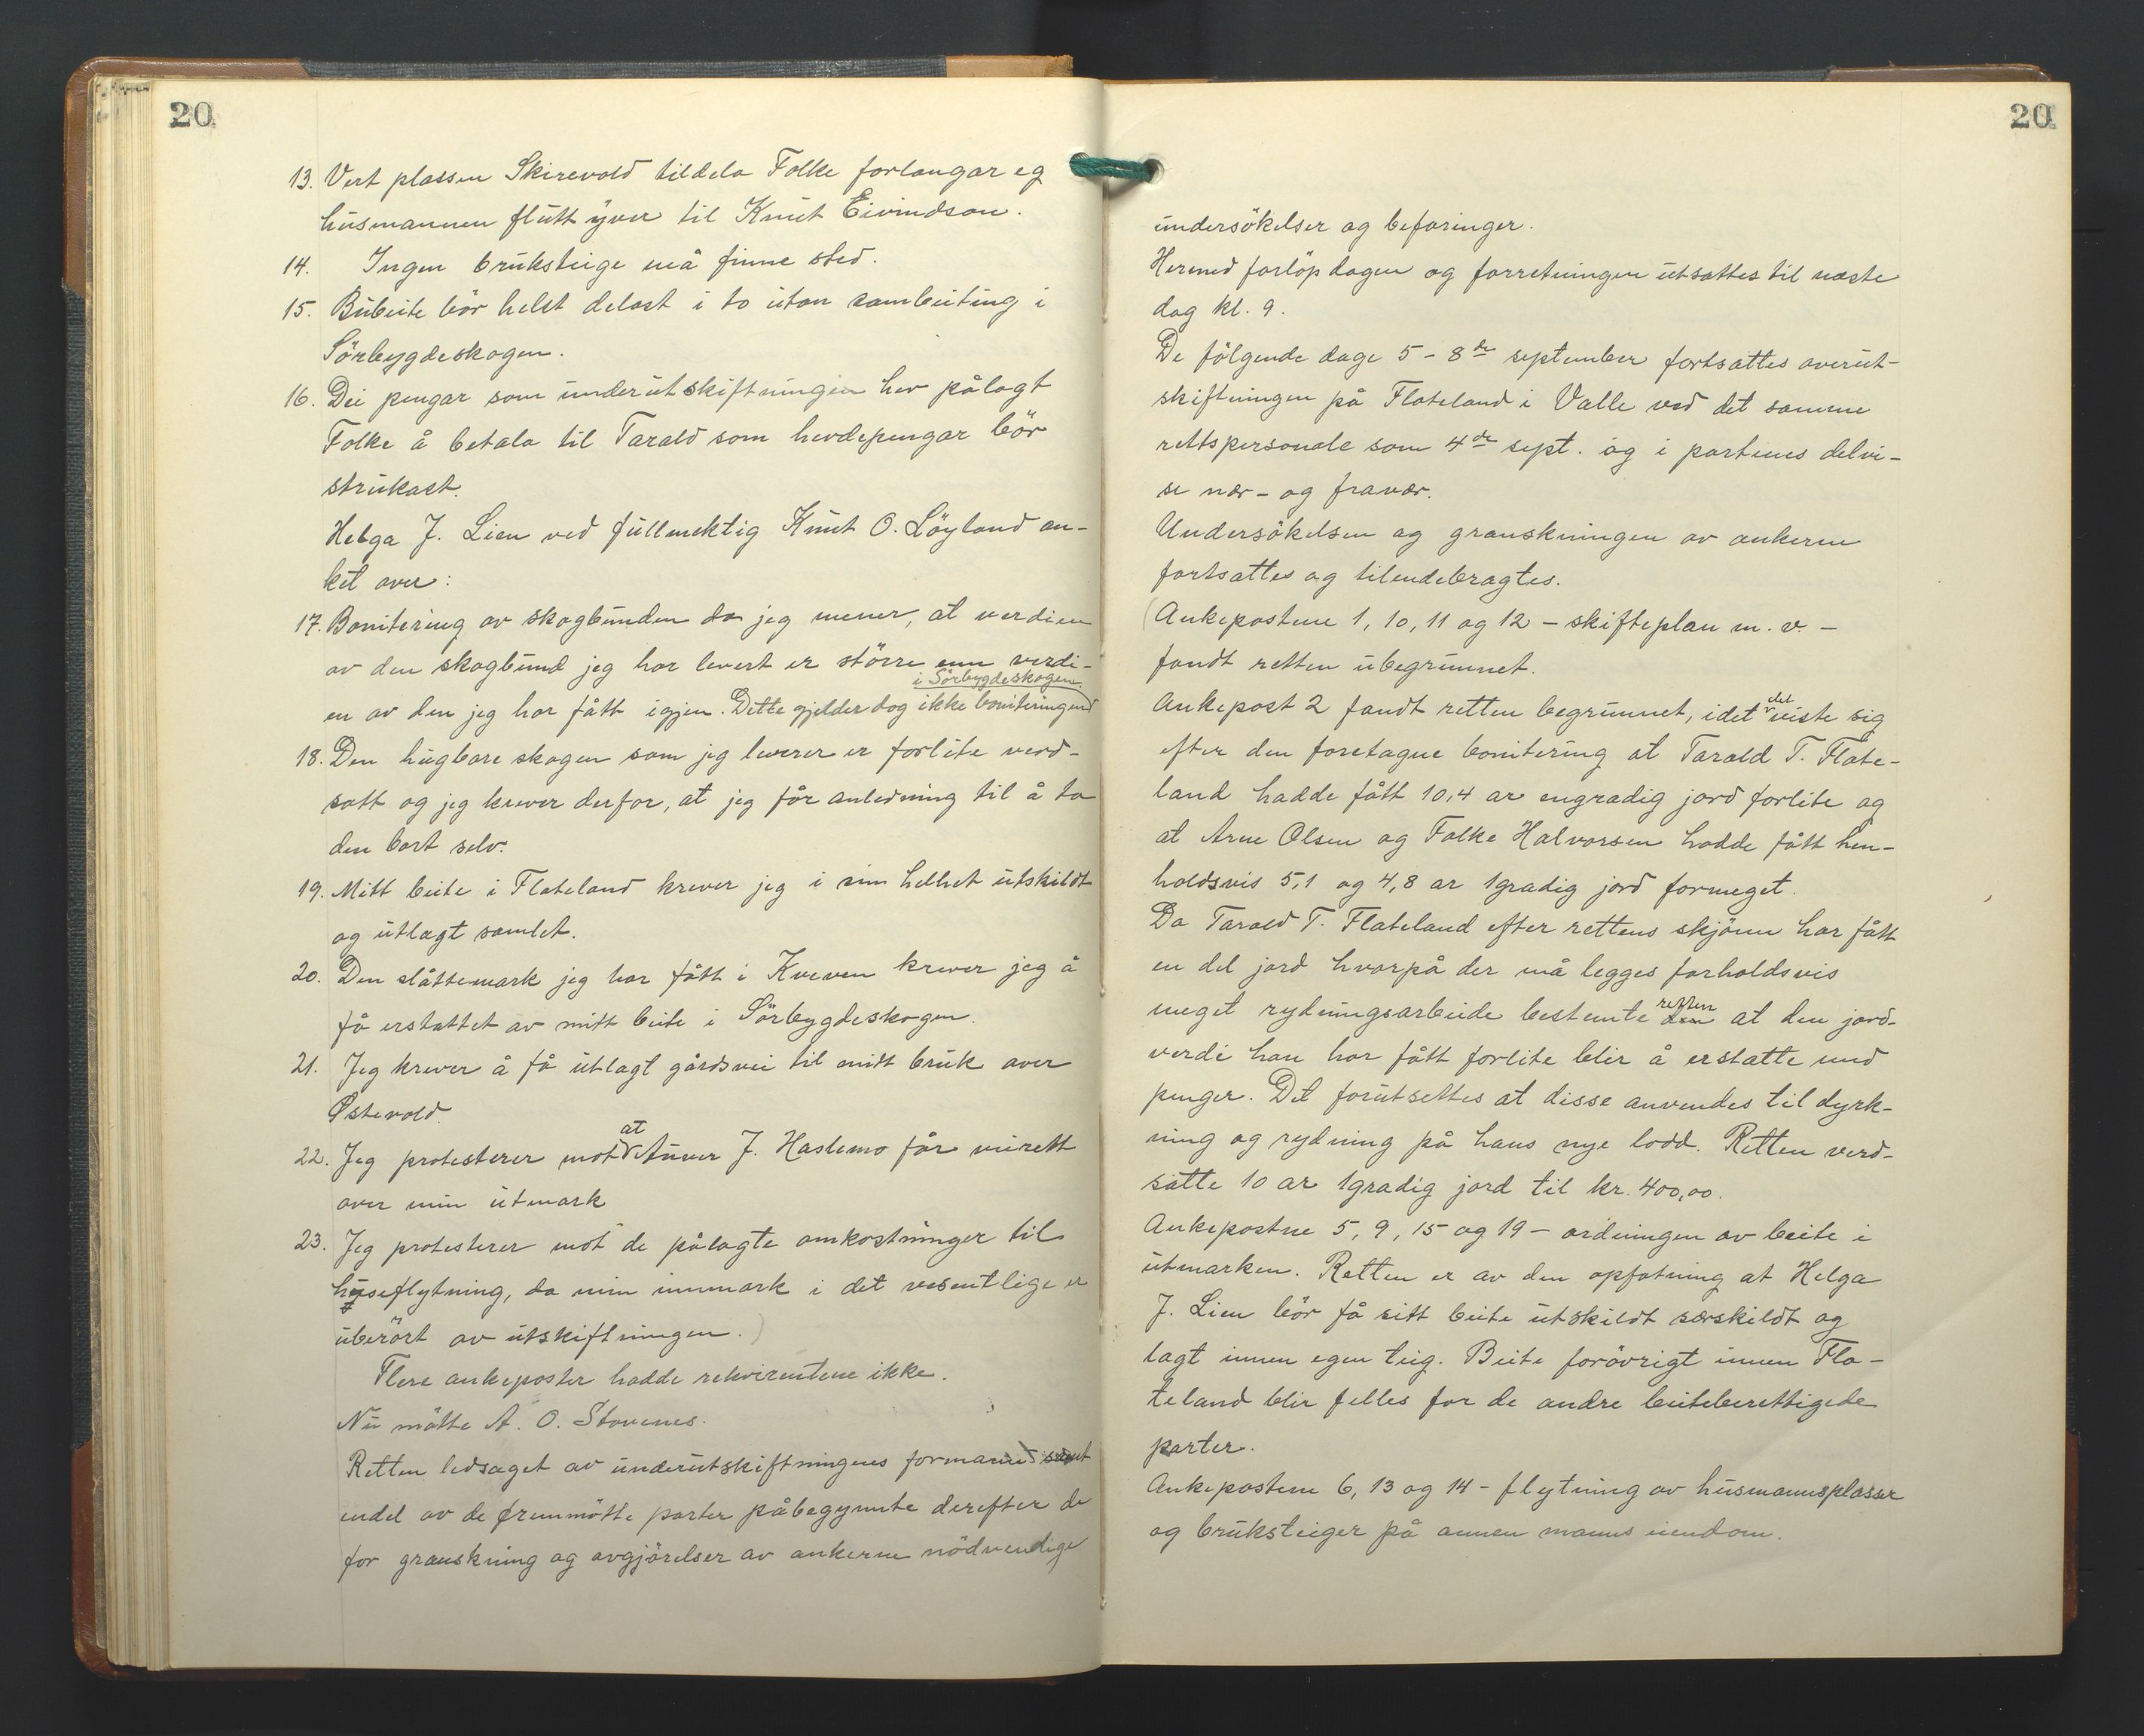 20.
13. Vert plassen Skirevold tildela Folke forlangar eg
husmannen flutt yver til Knut Eivindson.
14. Ingen bruksteige må finne sted.
15. Bubeite bör helst delast i to utan sambeiting i
Sörbygdeskogen.
16. Dei pengar som underutskiftningen hev pålagt
Folke å betala til Tarald som hevdepengar bör
strukast.
Helga J. Lien ved fullmektig Knut O. Löyland an-
ket over:
17. Bonitering av skogbunden da jeg mener, at verdien
av den skogbund jeg har levert er större enn verdi-
i Sörbygdeskogen.
en av den jeg har fått igjen. Dette gjelder dog ikke boniteringend
18. Den hugbare skogen som jeg leverer er forlite verd-
satt og jeg krever derfor, at jeg får anledning til å ta
den bort selv.
19. Mitt beite i Flateland krever jeg i sin helhet utskildt
og utlagt samlet.
20. Den slåttemark jeg har fått i Kveven krever jeg å
få erstattet av mitt beite i Sörbygdeskogen.
21. Jeg krever å få utlagt gårdsvei til mitt bruk over
Østevold.
at
22. Jeg protesterer mot Anver J. Haslemo får veirett
over min utmark
23. Jeg protesterer mot de pålagte omkostninger til
huseflytning, da min innmark i det vesentlige er
uberört av utskiftningen.)
Flere ankeposter hadde rekvirentene ikke.
Nu mötte A. O. Stavenes.
Retten ledsaget av underutskiftningens formann samt
endel av de fremmötte parter påbegynnte derefter de
for granskning og avgjörelser av ankerne nödvendige
20.
undersökelser og befaringer.
Hermed forlöp dagen og forretningen utsattes til næste
dag kl. 9.
De fölgende dage 5 - 8de september fortsattes overut-
skiftningen på Flateland i Valle ved det samme
rettspersonale som 4de sept. og i partenes delvi-
se nær- og fravær.
Undersökelsen og granskningen av ankerne
fortsattes og tilendebragtes.
(Ankepostene 1, 10, 11 og 12 - skifteplan m. v. -
fandt retten ubegrunnet.
det
Ankepost 2 fandt retten begrunnet, idet viste sig
efter den foretagne bonitering at Tarald T. Flate-
land hadde fått 10,4 ar engradig jord forlite og
at Arne Olsen og Folke Halvorsen hadde fått hen-
holdsvis 5,1 og 4,8 ar 1gradig jord formeget.
Da Tarald T. Flateland efter rettens skjönn har fått
en del jord hvorpå der må legges forholdsvis
retten
meget rydningsarbeide bestemte den at den jord-
verdi han har fått forlite blir å erstatte med
penger. Det forutsettes at disse anvendes til dyrk-
ning og rydning på hans nye lodd. Retten verd-
satte 10 ar 1gradig jord til kr. 400,00.
Ankepostne 5, 9, 15 og 19 - ordningen av beite i
utmarken. Retten er av den opfatning at Helga
J. Lien bör få sitt beite utskildt særskildt og
lagt innen egen teig. Beite forövrigt innen Fla-
teland blir felles for de andre beiteberettigede
parter.
Ankepostene 6, 13 og 14 - flytning av husmannsplasser
og bruksteiger på annen manns eiendom.